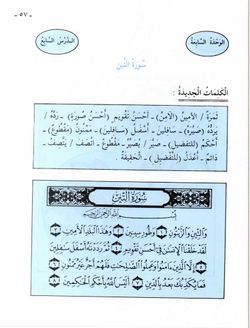 - ٥٧ -
الوَحْدَةُ السَّابِعَةُ
الدَّرْسُ السَّابِعُ
سُورَةُ التِّينِ
الْكَلِمَاتُ الْجَدِيدَةُ :
ثَمَرَةٌ / الأَمِينُ (الأَمْنُ) - أَحْسَنُ تَقْوِيمٍ (أَحْسَنُ صُورَةٍ) - رَدَّهُ /
يَرُدُّهُ (صَيَّرَهُ) - سَافِلِينَ - أَسْفَلُ (سَافِلِينَ) - مَمْنُونٌ (مَقْطُوعٌ) -
أَحْكَمُ (لِلتَّفْضِيلِ) - صَيَّرَ / يُصَيِّرُ - مَقْطُوعٌ - اتَّصَفَ - يَتَّصِفُ -
دَائِمٌ - أَعْدَلُ (لِلتَّفْضِيلِ) - الْحَقِيقَةُ .
سُورَةُ التِّينِ
بِسْمِ اللَّهِ الرَّحْمَنِ الرَّحِيمِ
وَالتِّينِ وَالزَّيْتُونِ ١ وَطُورِ سِينِينَ ٢ وَهَٰذَا الْبَلَدِ الْأَمِينِ ٣
لَقَدْ خَلَقْنَا الْإِنسَٰنَ فِىٓ أَحْسَنِ تَقْوِيمٍ ٤ ثُمَّ رَدَدْنَٰهُ أَسْفَلَ سَٰفِلِينَ
٥ إِلَّا الَّذِينَ ءَامَنُوا وَعَمِلُوا الصَّٰلِحَٰتِ فَلَهُمْ أَجْرٌ غَيْرُ مَمْنُونٍ ٦
فَمَا يُكَذِّبُكَ بَعْدُ بِالدِّينِ ٧ أَلَيْسَ اللَّهُ بِأَحْكَمِ الْحَٰكِمِينَ ٨